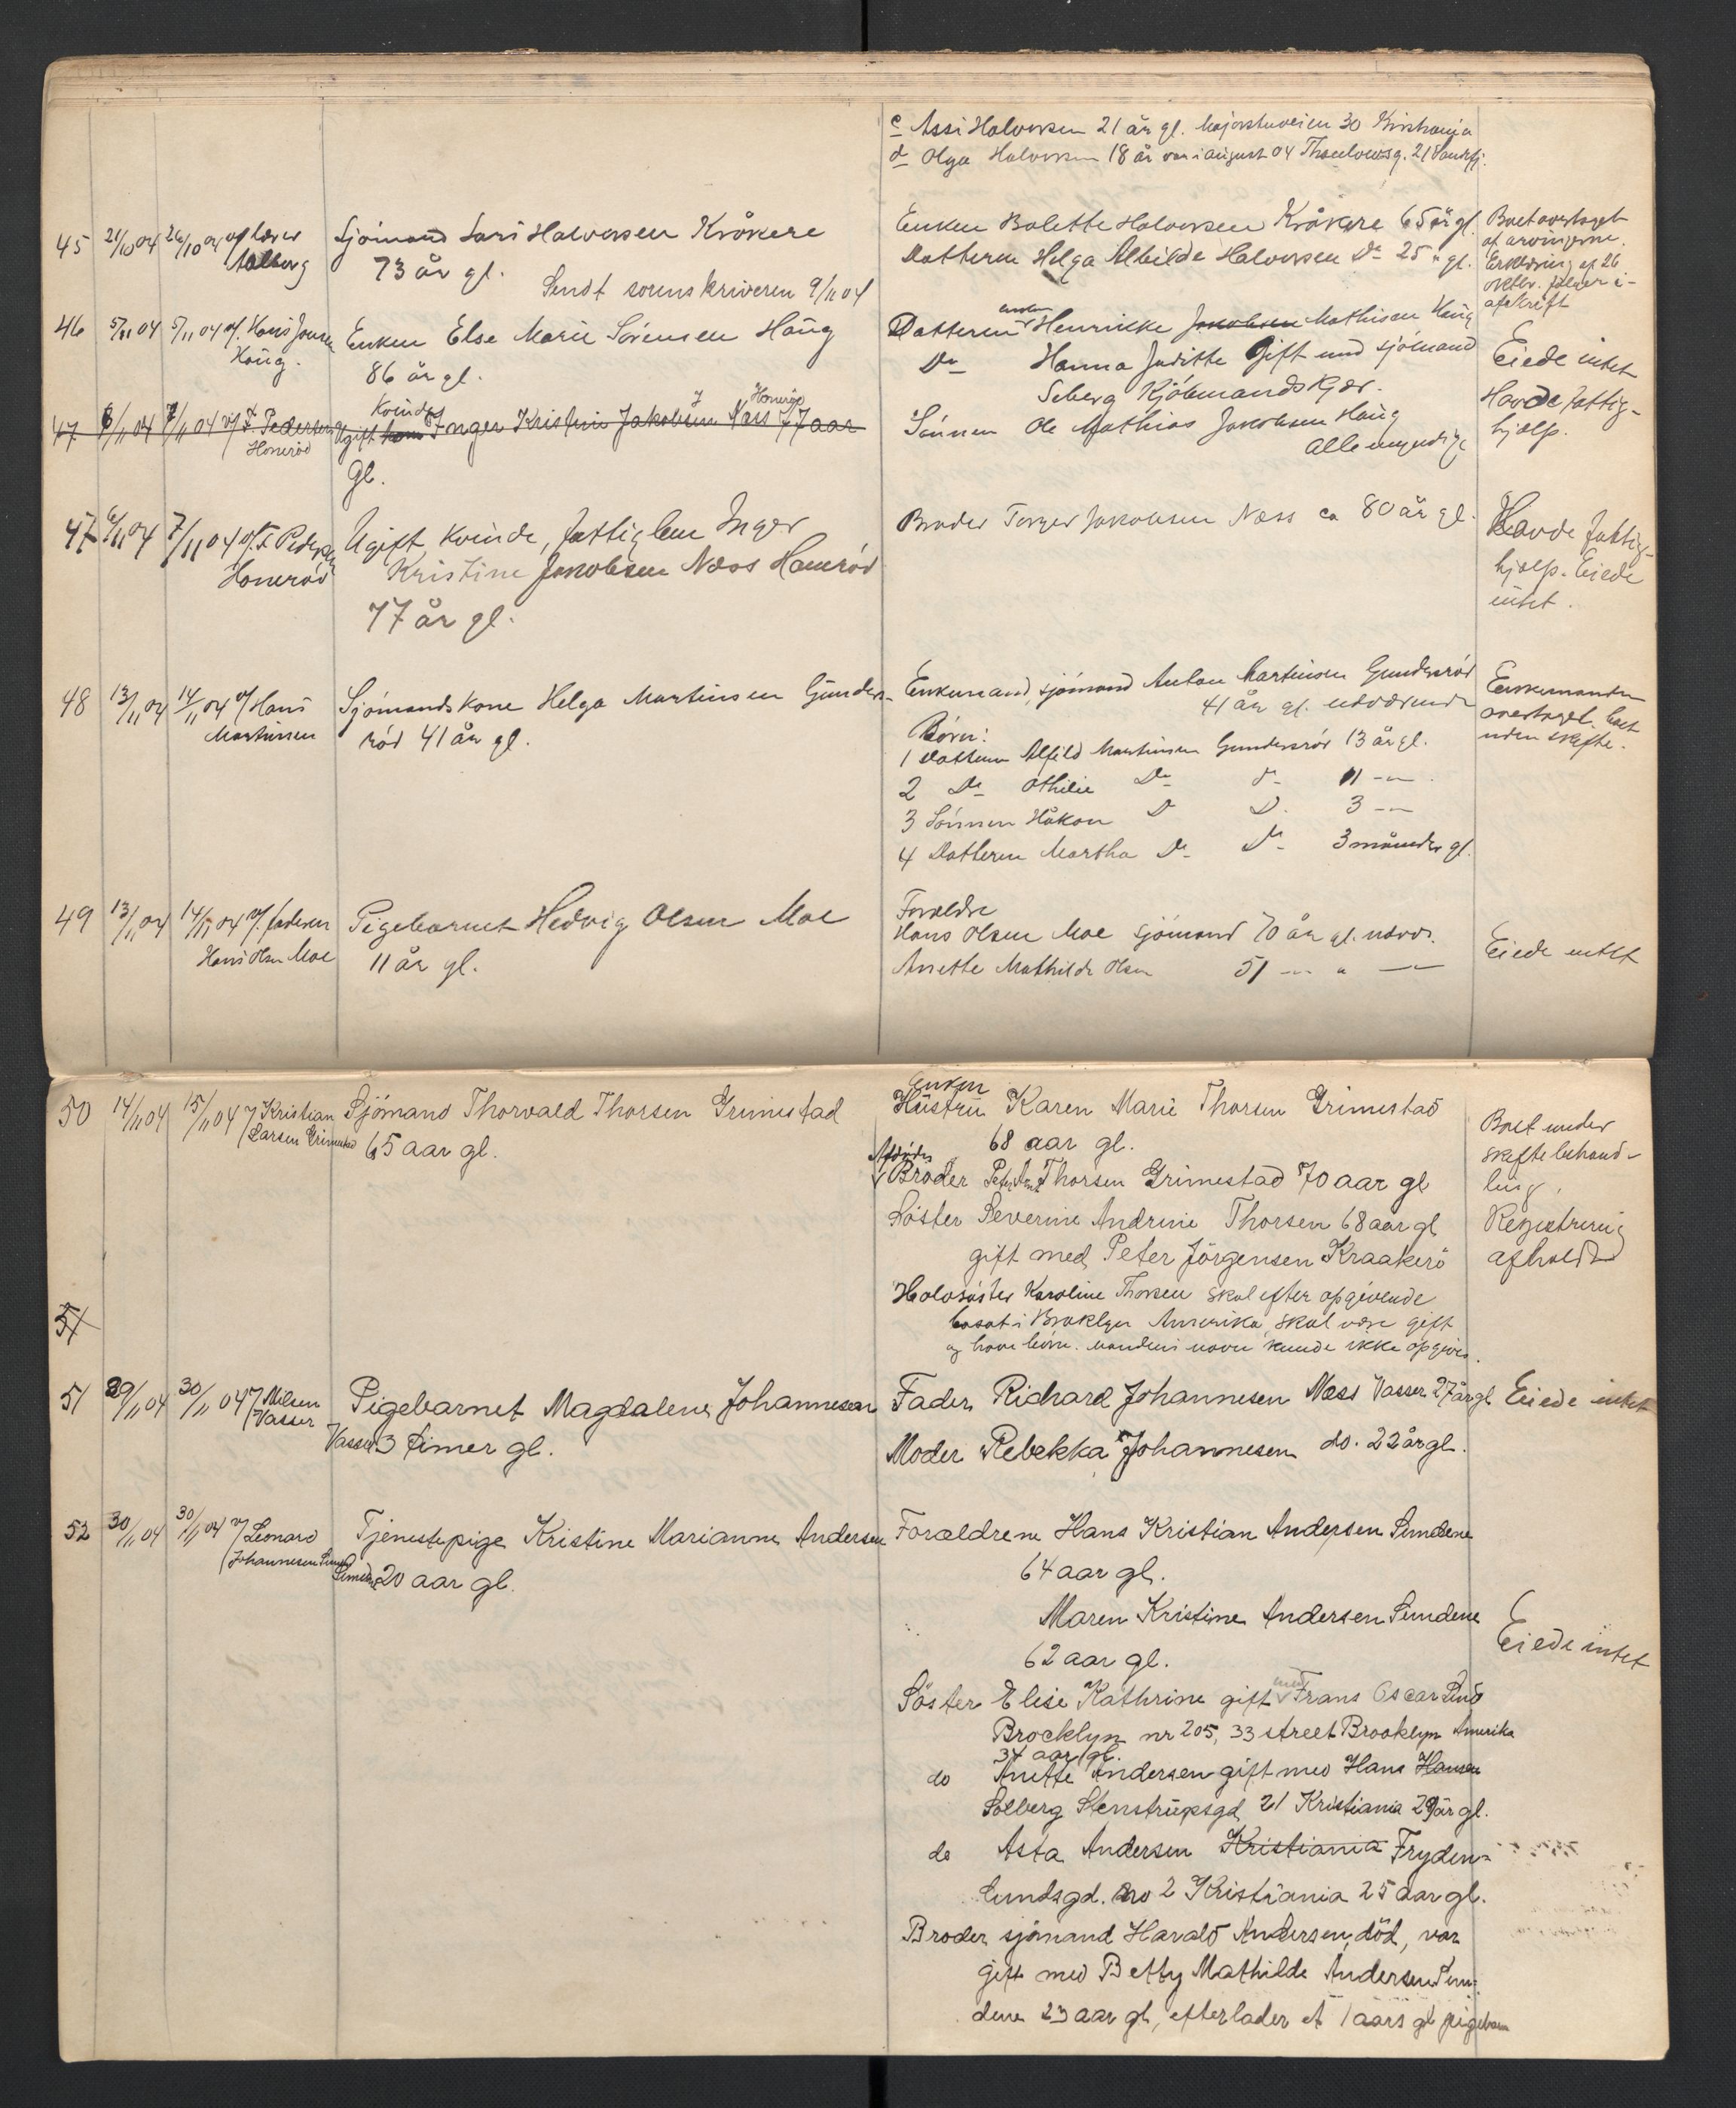 c Assi Halvorsen 21 år gl. Majorstuveien 30 Kristiania
d Olga Halvorsen 18 år var i august 04 Thaulowsg. 2 Sandefj.
45 21/10 04 26/10 04 af lærer Aalborg
Sjómand Lars Halvorsen Kråkere
73 år gl.
Sendt sorenskriveren 9/11 04
Enken Bolette Halvorsen Kråkere 65 år gl.
Datteren Helga Albilde Halvorsen Do 25 " gl.
Boet overtaget
af arvingerne.
Erklæring af 26
oktbr. følger i
afskrift
46 5/11 04 5/11 04 af. Hans Jonsen
Haug.
Enken Else Marie Sörensen Haug
86 år gl.
enken
Datteren Henrikke Jakobsen Mathisen Haug
Do Hanna Juditte Gift med sjómand
Seberg Kjöbmandskjær.
Sönnen Ole Mathias Jakobsen Haug
alle myndige
Eiede intet
Havde fattig-
hjælp.
47 6/11 04 7/11 04 af F. Pedersen
Honeröd
Ugift kone Kvinde Inger Kristine Jakobsen Næss Honeröd 77 aar
gl.
47 6/11 04 7/11 04 af. F. Pedersen
Honeröd
Ugift Kvinde, fattiglem Inger
Kristine Jakobsen Næss Honeröd
77 år gl.
Broder Torger Jakobsen Næss ca 80 år gl.
Havde fattig-
hjælp. Eiede
intet.
48 13/11 04 14/11 04 af Hans
Martinsen
Sjómandskone Helga Martinsen Gunders-
röd 41 år gl.
Enkemand, sjómand Anton Martinsen Gundersröd
41 år gl. nærværende
Börn:
1 Datteren Alfild Martinsen Gundersröd 13 år gl.
2 Do Othilie Do do 11 - "
3 Sönnen Håkon D D. 3 - "
4 Datteren Martha Do Do 3 måneder gl.
Enkemanden
overtaget boet
uden skifte.
49 13/11 04 14/11 04 af. faderen
Hans Olsen Moe
Pigebarnet Hedvig Olsen Moe
11 år gl.
Forældre
Hans Olsen Moe sjömand 70 år gl. nærv.
Anette Mathilde Olsen 51 - " -
Eiede intet
50 14/11 04 15/11 04 af Kristian
Larsen Grimestad
Sjómand Thorvald Thorsen Grimestad
65 aar gl.
Enken
Hustru Karen Marie Thorsen Grimestad
68 aar gl.
Afdöde
Broder Peter Thorsen Grimestad 70 aar gl
Söster Severine Andrine Thorsen 68 aar gl
gift med Peter Jörgensen Kraakerö
Halvsöster Karoline Thorsen skal efter opgivende
bosat i Broklyn Amerika, skal være gift
og have börn. mandens navn kunde ikke opgives.
Boet under
skiftebehand-
ling.
Registrering
afholdt
51
51 29/11 04 30/11 04 af Nilsen
Vasser
Pigebarnet Magdalene Johannesen
Vasser 3 timer gl.
Fader Richard Johannesen Næss Vasser 27 år gl
Moder Rebekka Johannesen do. 22 år gl.
Eiede intet
52 30/11 04 30/11 04 af Leonard
Johannesen Sundene
Tjenestepige Kristine Marianne Andersen
Sundene 20 aar gl.
Forældrene Hans Kristian Andersen Sundene
64 aar gl.
Maren Kristine Andersen Sundene
62 aar gl.
Söster Elise Kathrine gift med Frans Oscar Lind
Brocklyn nr 205, 33 street Brooklyn Amerika
34 aar gl.
do Anette Andersen gift med Hans Hansen
Solberg Stenstrupsgd 21 Kristiania 29 år gl.
do Asta Andersen Kristiania Fryden-
lundsgd. no 2 Kristiania 25 aar gl.
Broder sjömand Harald Andersen, död, var
gift med Betty Mathilde Andersen Sun-
dene 23 aar gl, efterlader et 1 aars gl pigebarn
Eiede intet